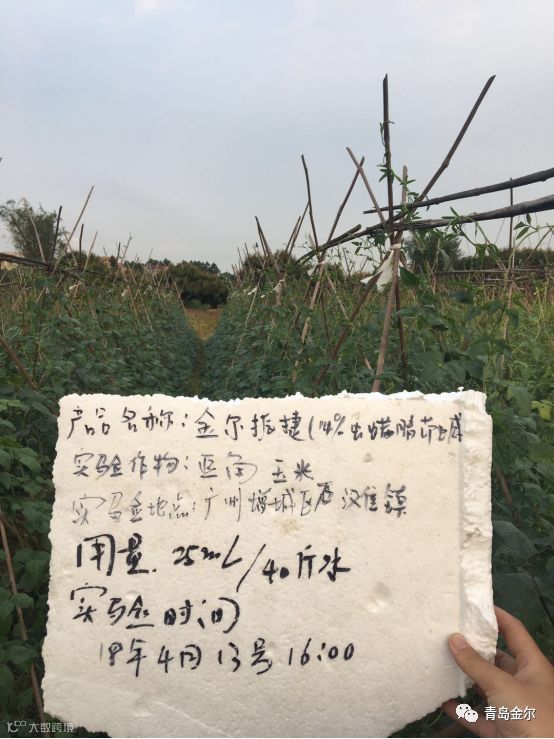 产品名称：金尔振捷（14%虫螨腈茚虫威
实验作物：豆角 玉米
实验地点：广州增城区石汉住镇
用量．25mL/40斤水
实验时间
18年4月13号16:00
青岛金尔
大数跨境